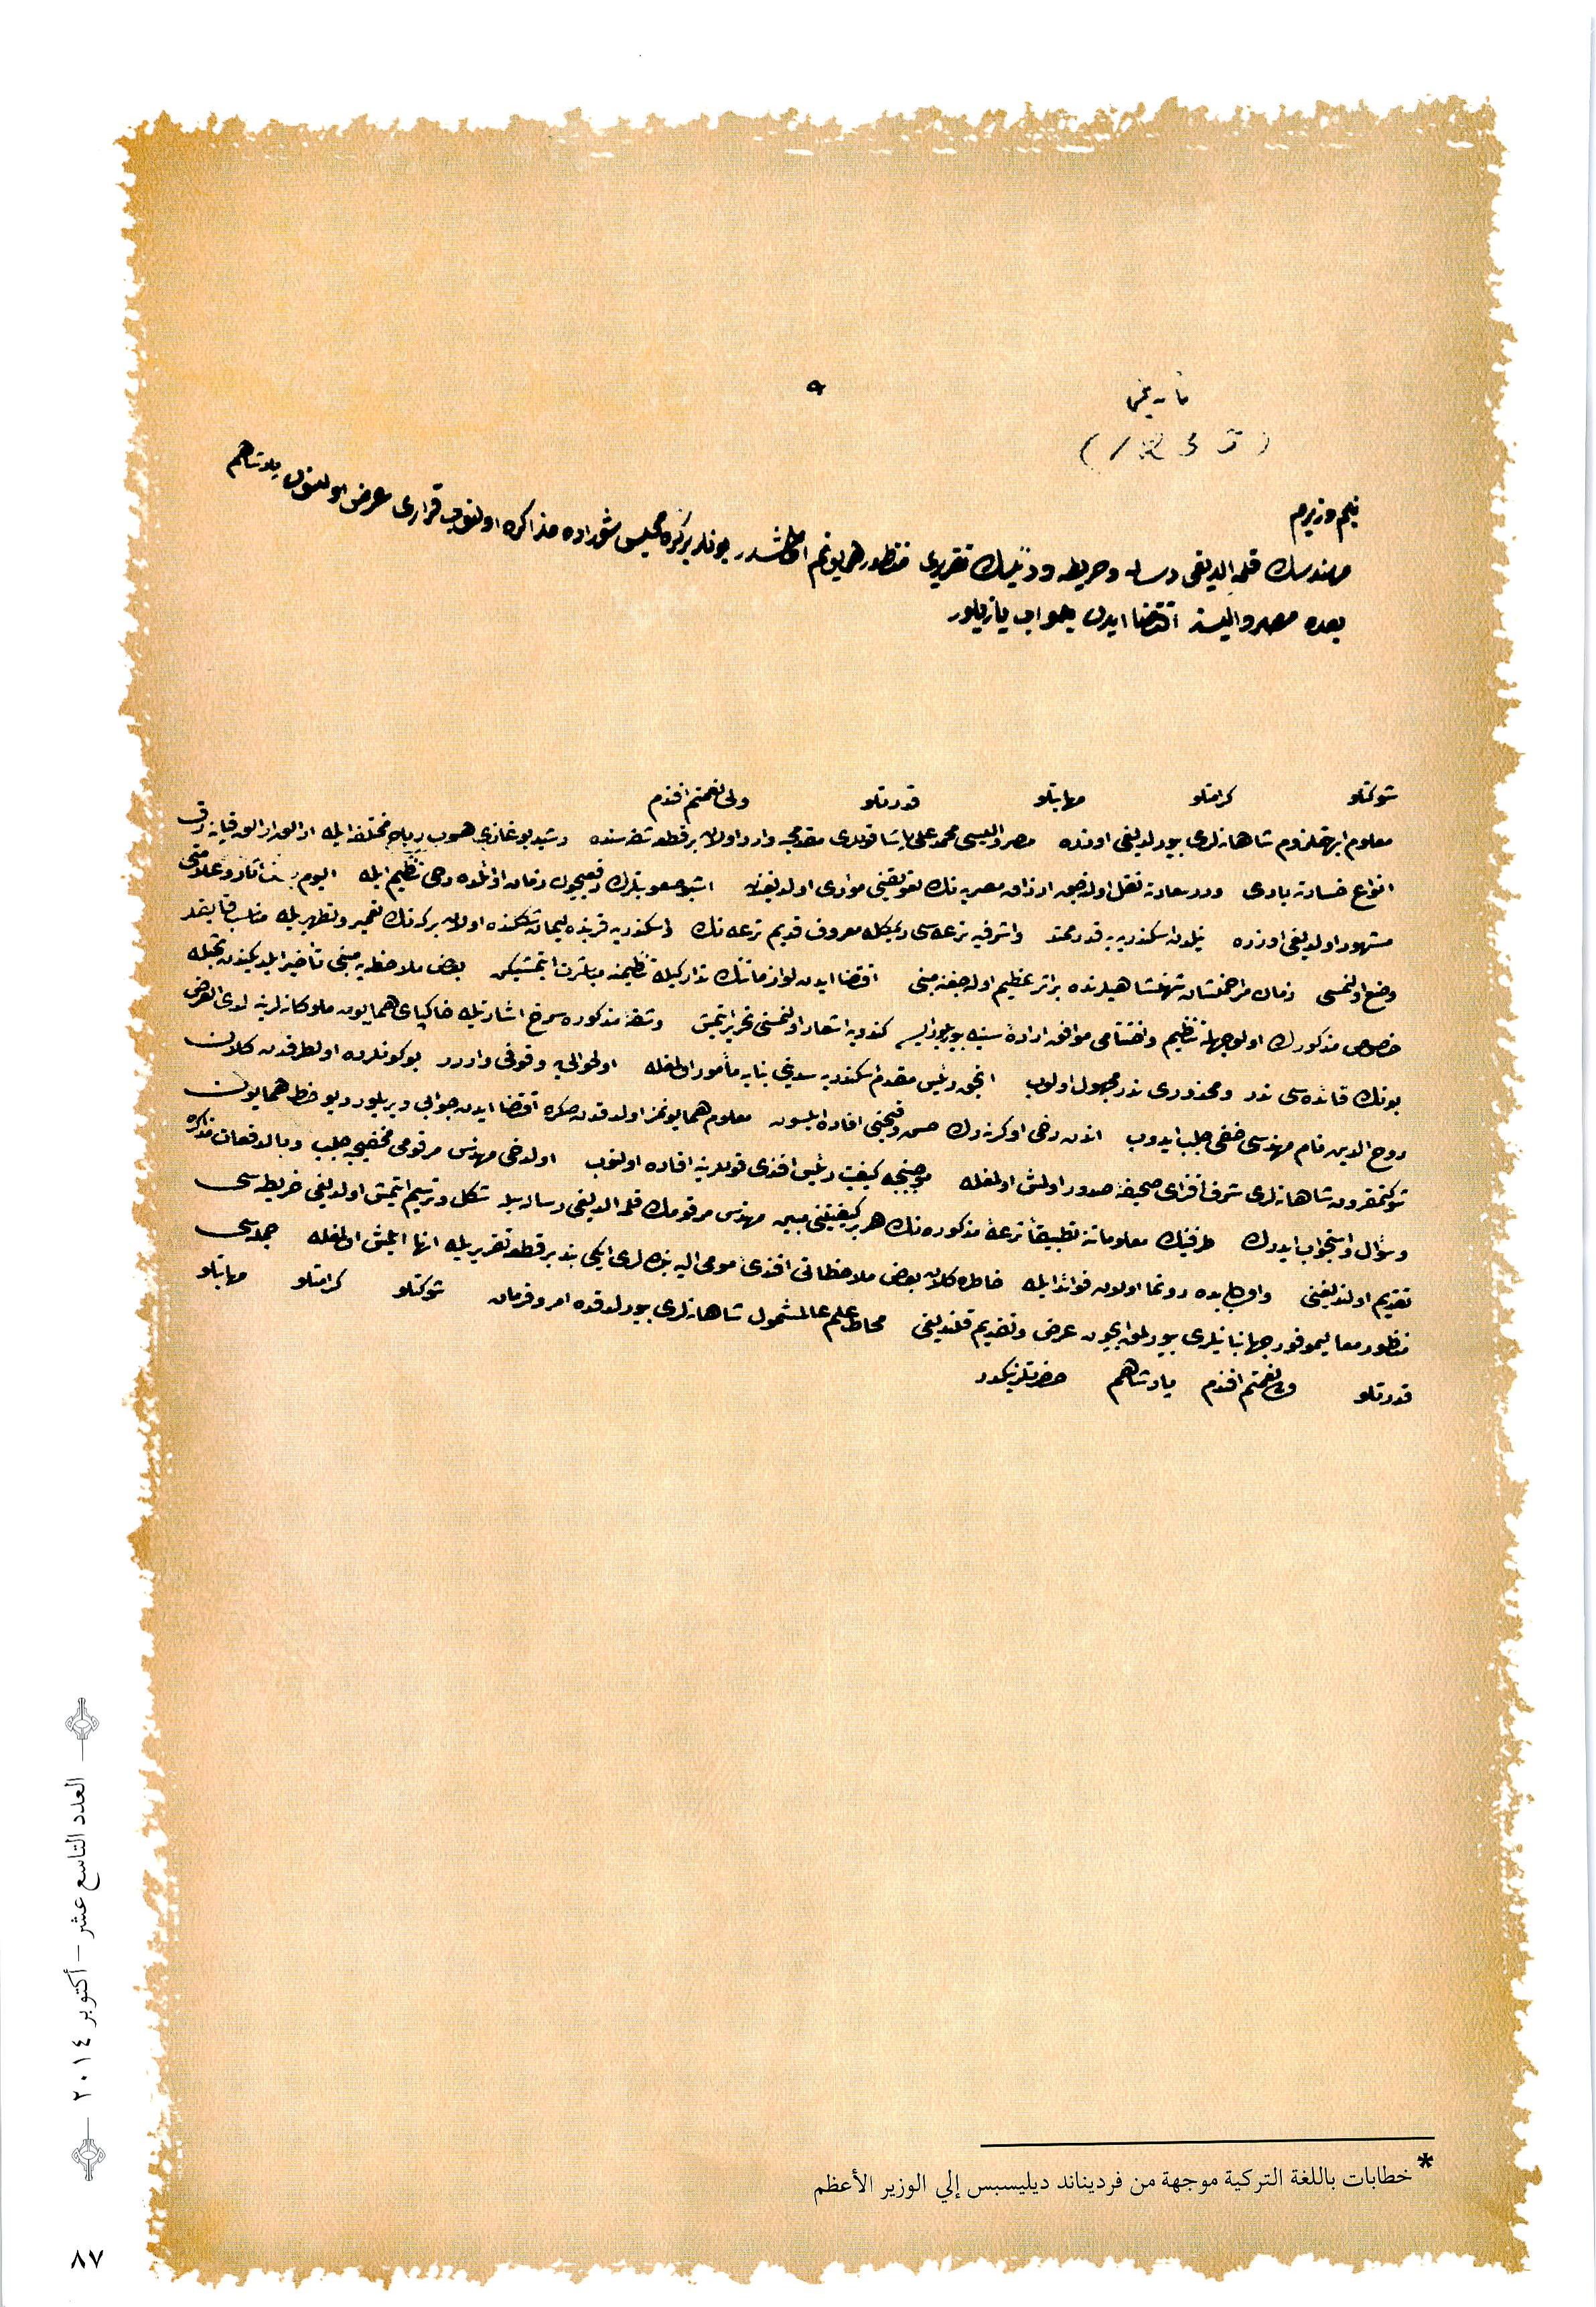 ٩
بنم وزيرم
مهندسك قلمه الديغى رساله وخريطه ورئيسك تقريرى منظور همايونم اولمشدر بونلر بر كره مجلس شوراده مذاكره اولنوب قرارى عرض اولنسون پادشاهم
بعده مصر واليسنه اقتضا ايدن جواب يازيلور
شوكتلو كرامتلو مهابتلو قدرتلو ولى نعمتم افندم
معلوم شاهانه لرى بيورلديغى اوزره مصر واليسى محمد على پاشا قوللرى مقدمجه وارد اولان بر قطعه شقه سنده رشيد بوغازى هبوب رياح مختلفه ايله
انواع خسارته بادى ودرسعادته نقل اولنه جق ارزاق مصريه نك تعويقنى مؤدى اولديغندن اشبو صعوبتلرك دفعيچون زمان اوائلده دخى تنظيم ايله اليوم آثار وعلامتى
مشهود اولديغى اوزره نيلدن اسكندريه يه قدر ممتد واشرفيه ترعه سى ديمكله معروف قديم ترعه نك واسكندريه قربنده ليمان شكلنده اولان بركه نك تعمير وتطهيريله
وضع اولنمسى زمان شهنشاهيلرنده بر اثر عظيم اوله جغنه مبنى اقتضا ايدن لوازماتنك تداركيله تنظيمنه مباشرت ايتمشيكن بعض ملاحظه يه مبنى تأخير
خصوص مذكورك اولوجهله تنظيم واختتامى موافق اراده سنيه بيوريلور ايسه كندويه اشعار اولنمسنى تحرير ايتمش وشقه مذكوره سرخ اشارتيله خاكپاى همايون ملوكانه لرينه لدى العرض
بونك فائده سى ندر ومحذورى ندر مجهول اولوب انجق رئيس مقدم اسكندريه سدى بناسنه مأمور اولمغله اولحواليه وقوفى واردر بوكونلرده اولطرفدن كلان
روح الدين نام مهندسى خفى جلب ايدوب اندن دخى اوكرنه رك حسن وقبحنى افاده ايلسون معلوم همايونمز اولدقدن صكره اقتضا ايدن جوابى ويريلور ديو خط همايون
شوكتمقرون شاهانه لرى شرف افزاى صحيفه صدور اولمش اولمغله موجبنجه كيفيت رئيس افندى قوللرينه افاده اولنوب اولدخى مهندس مرقومى جلب وبالدفعات مذاكره
وسؤال واستجواب ايدرك طرفينك معلوماته تطبيقا ترعه مذكوره نك هر بر كيفيتنى مبين مهندس مرقومك قلمه الديغى رساله يله شكل وترسيم ايتمش اولديغى خريطه سى
تقديم اولنديغنى واول بابده رونما اولان فوائد ايله خاطره كلان بعض ملاحظاتى افندئ مومى اليه بنده لرى ايكى بند بر قطعه تقريريله انها ايلمش اولمغله جمله سى
منظور معاليموفور جهانبانيلرى بيورلمق ايچون عرض وتقديم قلنديغى محاط علم عالمشمول شاهانه لرى بيورلدقده امر وفرمان شوكتلو كرامتلو مهابتلو
قدرتلو ولى نعمتم افندم پادشاهم حضرتلرينكدر
* خطابات باللغة التركية موجهة من فرديناند ديليسبس إلي الوزير الأعظم
العدد التاسع عشر – أكتوبر ٢٠١٤
٨٧